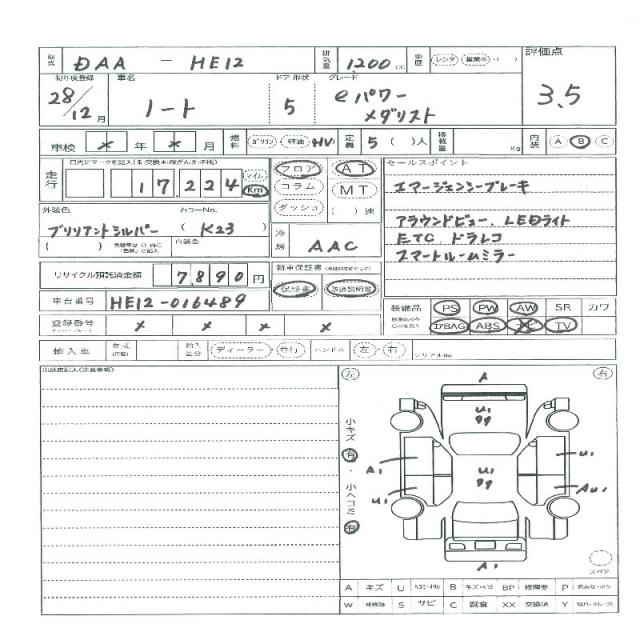 型式 DAA - HE12 排気量 1200 cc 車歴 レンタ ・ 営業車 ・( ) 評価点
初年度登録 車名 ドア 形状 グレード
28/12月 ノート 5 eパワー メダリスト 3.5
車検 × 年 × 月 燃料 ガソリン ・ 軽油 ・ HV 定員 5 ( )人 積載量 Kg 内装 A B C
走行 17,224 マイル Km
フロア AT
コラム MT
ダッシュ ( )速
セールスポイント
エマージェンシーブレーキ
アラウンドビュー、LEDライト
ETC ドラレコ
スマートルームミラー
外装色 カラーNo.
ブリリアントシルバー ( K23 )
( ) 内装色
冷房 AAC
リサイクル預託済金額 7,890 円
新車保証書
保証書 ・ 取扱説明書
車台番号 HE12-016489
装備品 PS PW AW SR カワ
エアBAG ABS TV
登録番号 × × × ×
輸入車 年式 輸入区分 ディーラー ・ 並行 ハンドル 左 ・ 右 シリアルNo.
左 右
小キズ 有 ・ 小ヘコミ 有
A
U1
99
A1 U1 U1
99
U1 AU1
A1
スペア
A キズ U B キズ・ヘコミ BP 修理要 P
W 補修跡 S サビ C 腐食 XX 交換済 Y